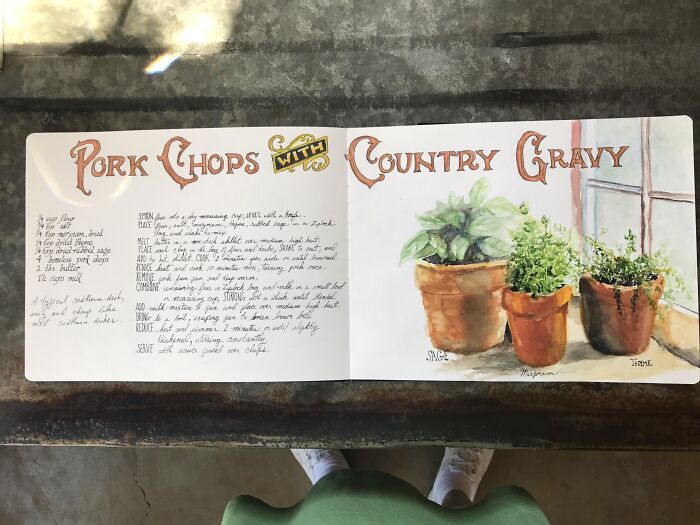 PORK CHOPS WITH COUNTRY GRAVY
1/4 cup flour
3/4 tsp salt
1/4 tsp marjoram, dried
1/4 tsp dried thyme
1/4 tsp dried rubbed sage
4 boneless pork chops
1 tbs butter
1 1/2 cups milk
A typical southern dish,
easy and cheap like
most southern dishes.
SPOON flour into a dry measuring cup, LEVEL with a knife.
PLACE flour, salt, marjoram, thyme, rubbed sage in a Ziplock
bag and shake to mix.
MELT butter in a non stick skillet over medium high heat.
PLACE each chop in the bag of flour and herbs, SHAKE to coat, and
ADD to hot skillet. COOK 2 minutes per side or until browned.
REDUCE heat and cook 10 minutes more, turning pork once.
REMOVE pork from pan and keep warm.
COMBINE remaining flour in Ziplock bag and milk in a small bowl
or measuring cup, STIRRING with a whisk until blended.
ADD milk mixture to pan and place over medium high heat.
BRING to a boil, scraping pan to loosen brown bits.
REDUCE heat and simmer 2 minutes or until slightly
thickened, stirring constantly.
SERVE with sauce poured over chops.
SAGE
Marjoram
THYME